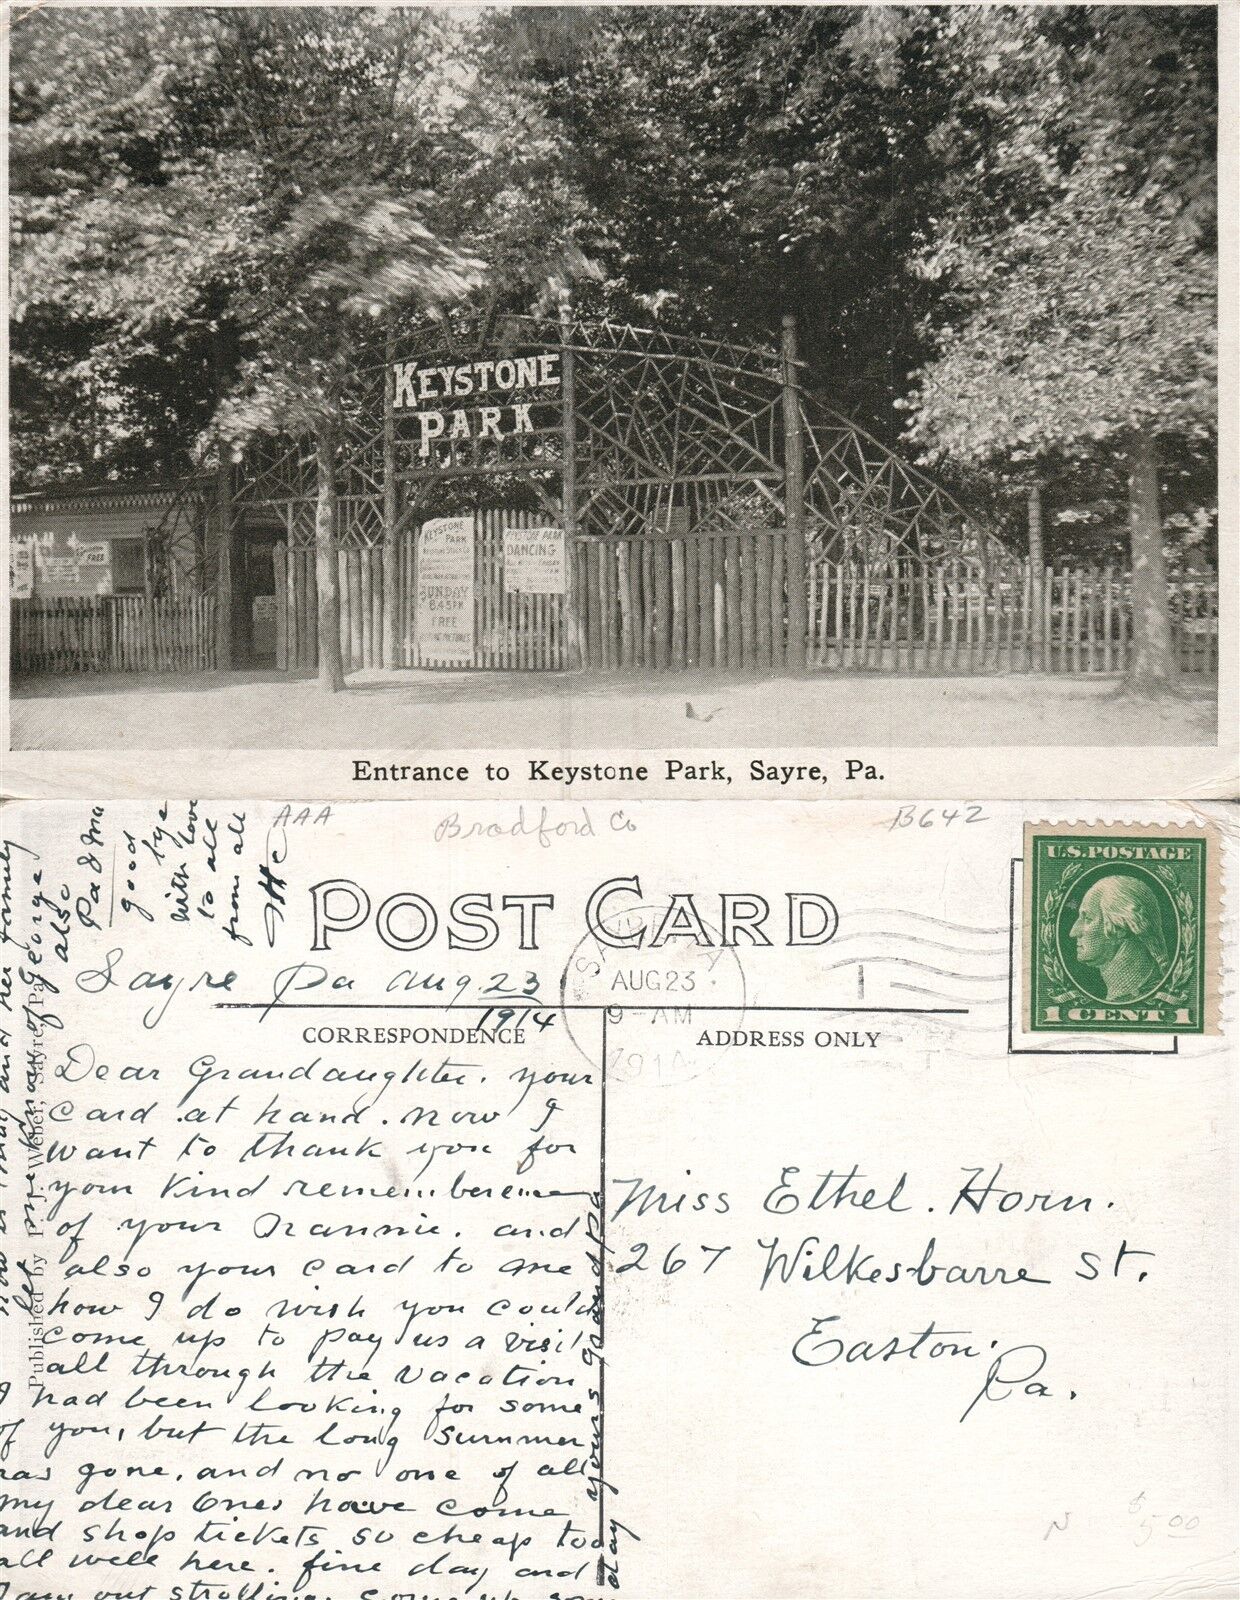 KEYSTONE
PARK
KEYSTONE
PARK
SUNDAY
8:45 PM
FREE
KEYSTONE PARK
DANCING
FREE
Entrance to Keystone Park, Sayre, Pa.
AAA
Bradford Co
B642
POST CARD
U.S. POSTAGE
1 CENT 1
AUG 23
9-AM
1914
Sayre Pa Aug. 23
1914
CORRESPONDENCE
ADDRESS ONLY
Dear Grandaughter. your
Card at hand. now I
want to thank you for
your Kind rememberence
of your Nannie. and
also your Card to me
how I do wish you could
come up to pay us a visit
all through the vacation
I had been looking for some
of you, but the long summer
has gone, and no one of all
my dear Ones have come
and shop tickets so cheap too
all well here. fine day and
I am out strolling. come up some
day yours grandpa
how is May and her family
let me know of George
also
Pa & Ma
good
bye
with love
to all
from all
Published by P. J. Weber, Sayre, Pa.
Miss Ethel. Horn.
267 Wilkesbarre St.
Easton.
Pa.
N $5.00